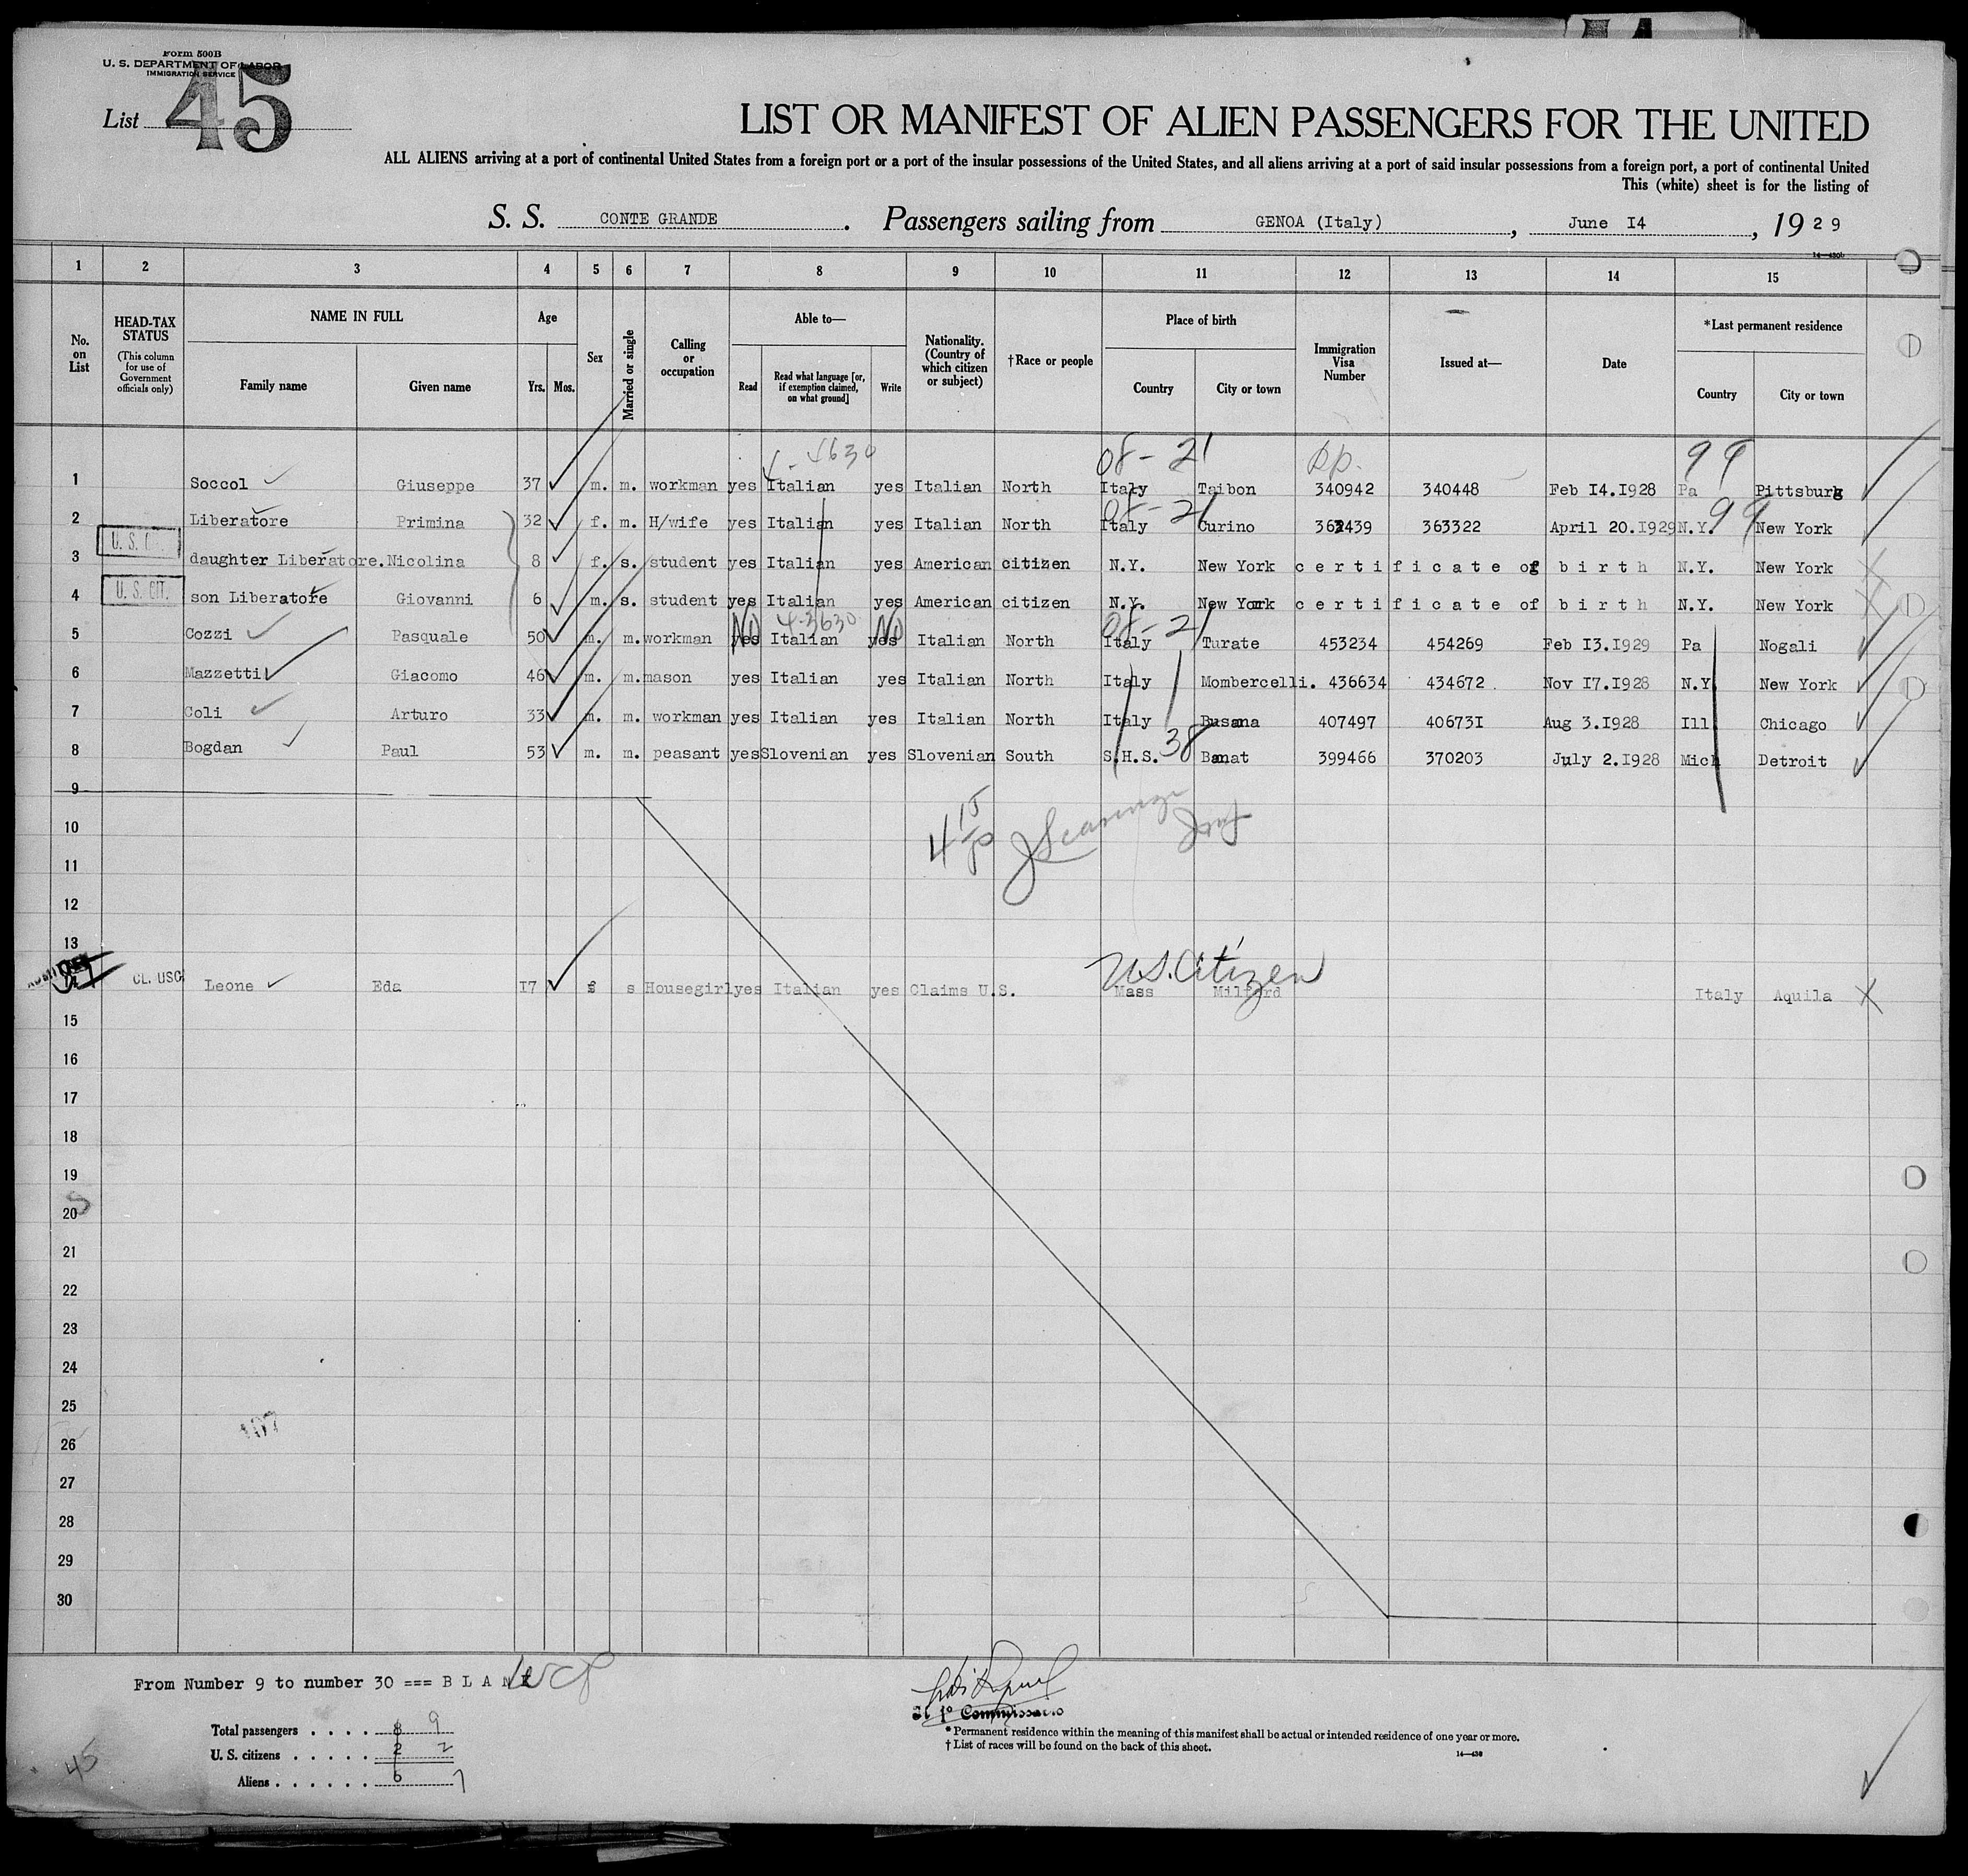 Form 500B
U. S. DEPARTMENT OF LABOR
IMMIGRATION SERVICE
List 45
LIST OR MANIFEST OF ALIEN PASSENGERS FOR THE UNITED
ALL ALIENS arriving at a port of continental United States from a foreign port or a port of the insular possessions of the United States, and all aliens arriving at a port of said insular possessions from a foreign port, a port of continental United
This (white) sheet is for the listing of
S. S. CONTE GRANDE. Passengers sailing from GENOA (Italy), June I4, 1929
14—430b
1 2 3 4 5 6 7 8 9 10 11 12 13 14 15
No. on List
HEAD-TAX STATUS (This column for use of Government officials only)
NAME IN FULL
Family name Given name
Age
Yrs. Mos.
Sex
Married or single
Calling or occupation
Able to—
Read Read what language [or, if exemption claimed, on what ground] Write
Nationality. (Country of which citizen or subject)
†Race or people
Place of birth
Country City or town
Immigration Visa Number
Issued at—
Date
*Last permanent residence
Country City or town
08-21 pp. 99
1 Soccol Giuseppe 37 m. m. workman yes Italian yes Italian North Italy Taibon 340942 340448 Feb I4.I928 Pa Pittsburg
08-21 99
2 Liberatore Primina 32 f. m. H/wife yes Italian yes Italian North Italy Curino 362439 363322 April 20.I929 N.Y. New York
3 daughter Liberatore.Nicolina 8 f. s. student yes Italian yes American citizen N.Y. New York certificate of birth N.Y. New York
U. S. CIT.
4 son Liberatore Giovanni 6 m. s. student yes Italian yes American citizen N.Y. New York certificate of birth N.Y. New York
No 4-3630 No 08-21
5 Cozzi Pasquale 50 m. m. workman yes Italian yes Italian North Italy Turate 453234 454269 Feb I3.I929 Pa Nogali
6 Mazzetti Giacomo 46 m. m. mason yes Italian yes Italian North Italy Mombercelli. 436634 434672 Nov I7.I928 N.Y. New York
7 Coli Arturo 33 m. m. workman yes Italian yes Italian North Italy Busana 407497 40673I Aug 3.I928 Ill Chicago
8 Bogdan Paul 53 m. m. peasant yes Slovenian yes Slovenian South S.H.S. 38 Banat 399466 370203 July 2.I928 Mich Detroit
9
10
11
12
13
U.S. Citizen
CL. USC Leone Eda I7 f s Housegirl yes Italian yes Claims U.S. Mass Milford Italy Aquila
15
16
17
18
19
20
21
22
23
24
25
107
26
27
28
29
30
From Number 9 to number 30 === B L A N K
Il 1º Commissario
Total passengers . . . . 8 9
U. S. citizens . . . . . 2 2
Aliens . . . . . . 6 7
*Permanent residence within the meaning of this manifest shall be actual or intended residence of one year or more.
†List of races will be found on the back of this sheet.
14—430
45